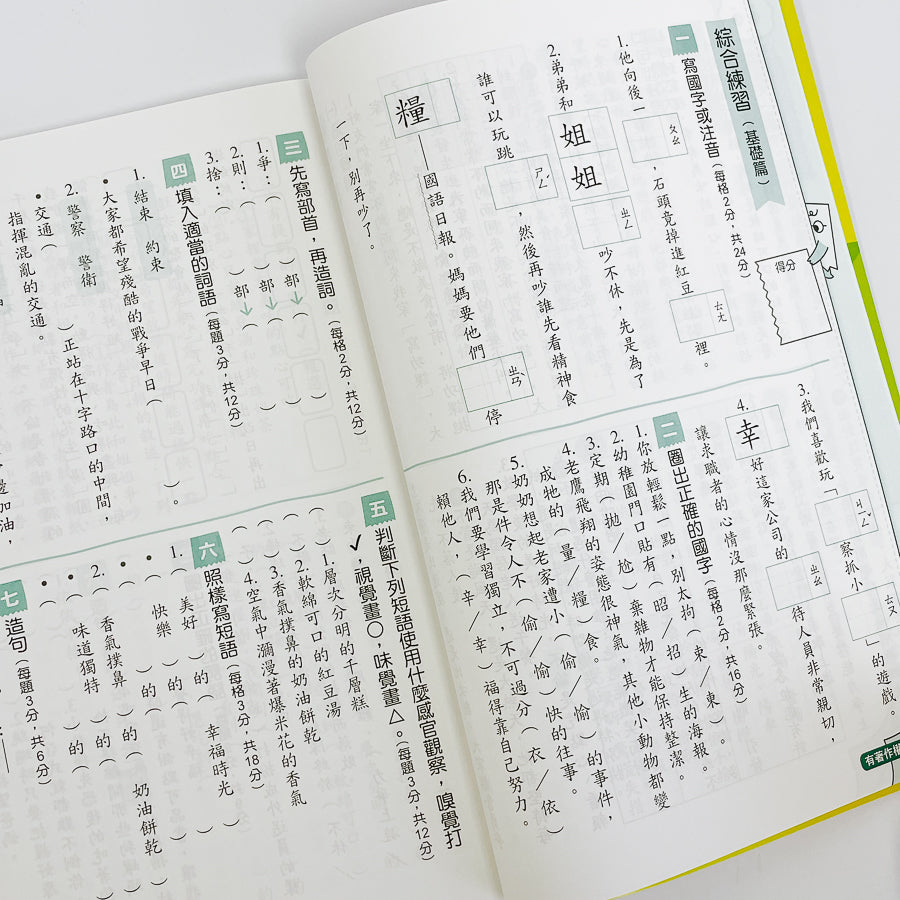 綜合練習（基礎篇）
得分
一 寫國字或注音（每格2分，共24分）
1. 他向後一ㄆㄠ，石頭竟掉進紅豆ㄊㄤ裡。
2. 弟弟和姐姐ㄓㄥ吵不休，先是為了
誰可以玩跳ㄕㄥˊ，然後再吵誰先看精神食
糧——國語日報。媽媽要他們ㄓㄢˋ停
一下，別再吵了。
3. 我們喜歡玩「ㄐㄧㄥˇ察抓小ㄊㄡ」的遊戲。
4. 幸好這家公司的ㄓㄠ待人員非常親切，
讓求職者的心情沒那麼緊張。
二 圈出正確的國字（每格2分，共16分）
1. 你放輕鬆一點，別太拘（束／東）。
2. 幼稚園門口貼有（昭／招）生的海報。
3. 定期（拋／尬）棄雜物才能保持整潔。
4. 老鷹飛翔的姿態很神氣，其他小動物都變
成牠的（量／糧）食。
5. 奶奶想起老家遭小（偷／愉）的事件，
那是件令人不（偷／愉）快的往事。
6. 我們要學習獨立，不可過分（衣／依）
賴他人，（辛／幸）福得靠自己努力。
有著作權
三 先寫部首，再造詞。（每格2分，共12分）
1. 爭：（　）部→（　）
2. 則：（　）部→（　）
3. 捨：（　）部→（　）
四 填入適當的詞語（每題3分，共12分）
1. 結束 約束
• 大家都希望殘酷的戰爭早日（　）。
2. 警察 警衛
• 交通（　）正站在十字路口的中間，
指揮混亂的交通。
邊加油，
五 判斷下列短語使用什麼感官觀察，嗅覺打
✓，視覺畫○，味覺畫△。（每題3分，共12分）
（　）1. 層次分明的千層糕
（　）2. 軟綿可口的紅豆湯
（　）3. 香氣撲鼻的奶油餅乾
（　）4. 空氣中瀰漫著爆米花的香氣
六 照樣寫短語（每格3分，共18分）
1. 美好（的）幸福時光
• 快樂（的）（　）
• （　）（的）（　）
2. 香氣撲鼻（的）奶油餅乾
• 味道獨特（的）（　）
• （　）（的）（　）
七 造句（每題3分，共6分）